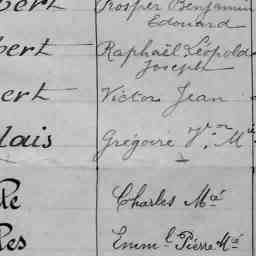 bert Prosper Benjamin
Edouard
bert Raphaël Léopold
Joseph
ert Victor Jean
lais Grégoire Vor Mie
le Charles Mcé
les Emm.l Pierre Mcé